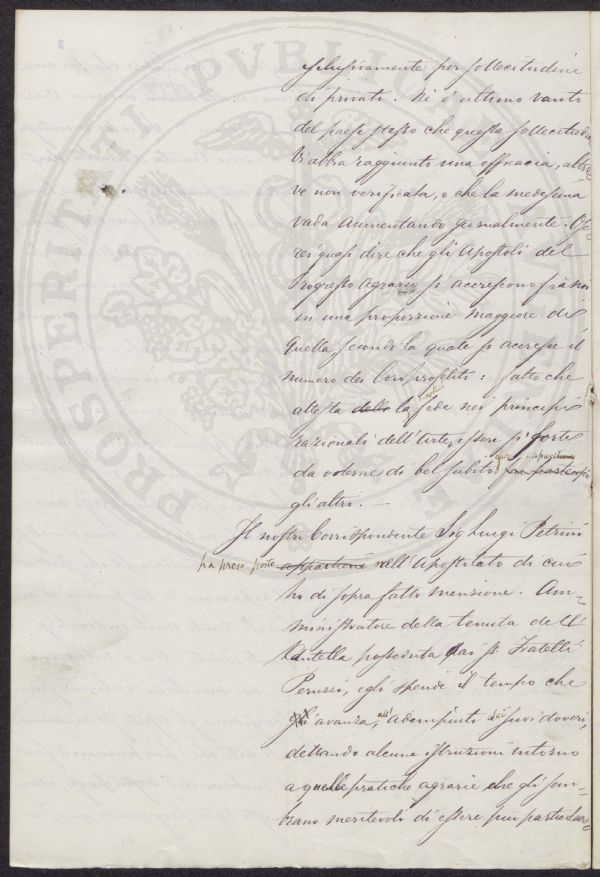 sclusivamente per sollecitudini
di privati. Nè è ultimo vanto
del paese stesso che questa sollecitudine
vi abbia raggiunto una efficacia, altro
ve non verificata, e che la medesima
vada aumentando giornalmente. Ose
rei quasi dire che gli Apostoli del
Progresso Agrario si accrescono frà noi
in una proporzione maggiore di
quella secondo la quale si accresce il
numero dei loro proseliti: fatto che
attesta della la fede nei principii
razionali dell'Arte, essere sì forte
da volerne di bel subito far partecipi
gli altri. —
Il nostro Corrispondente Sig Luigi Petrini
ha preso posto appartiene nell'Apostolato di cui
ho di sopra fatto menzione. Am-
ministratore della tenuta dell'
Antella posseduta dai SS. Fratelli
Peruzzi, egli spende il tempo che
gli avanza, all' adempiuti dei suoi doveri,
dettando alcune istruzioni intorno
a quelle pratiche agrarie che gli sem-
brano meritevoli di essere più particolar-
PROSPERITATI PVBLICAE